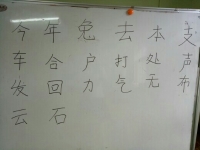 今年免去本支
车合户打处声
发回力气无布
云石